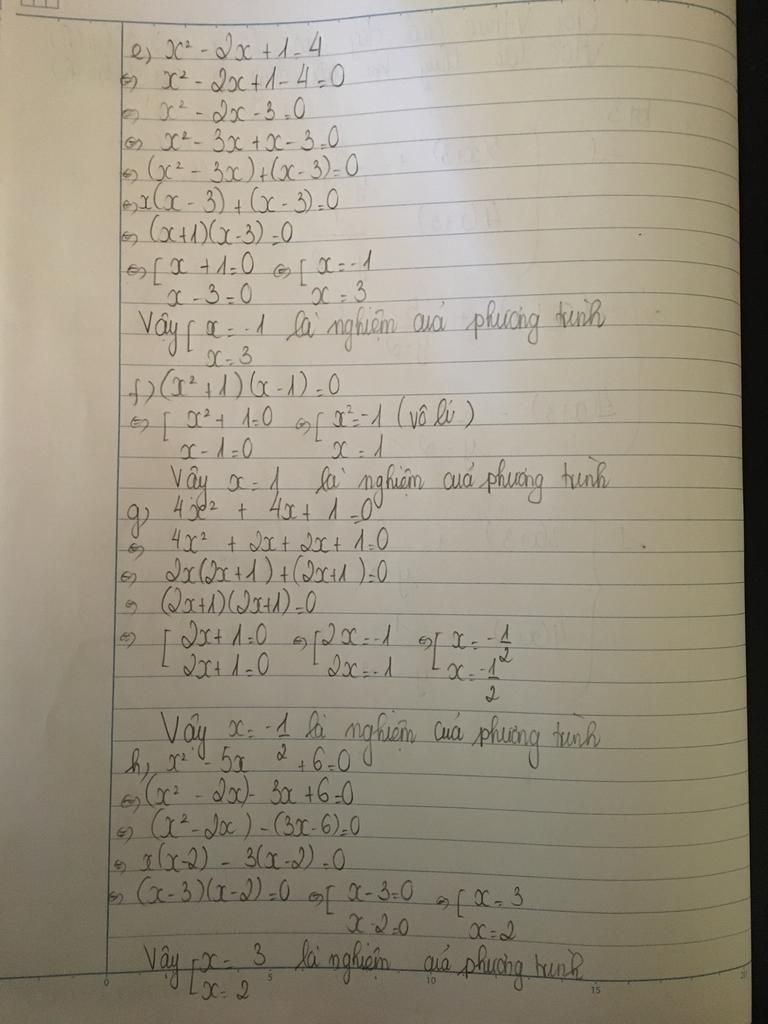 e) x² - 2x + 1 = 4
⇔ x² - 2x + 1 - 4 = 0
⇔ x² - 2x - 3 = 0
⇔ x² - 3x + x - 3 = 0
⇔ (x² - 3x) + (x - 3) = 0
⇔ x(x - 3) + (x - 3) = 0
⇔ (x+1)(x-3) = 0
⇔ [ x + 1 = 0 ⇔ [ x = -1
x - 3 = 0 x = 3
Vậy [ x = -1 là nghiệm cuả phương trình
x = 3
f) (x² + 1)(x - 1) = 0
⇔ [ x² + 1 = 0 ⇔ [ x² = -1 (vô lí)
x - 1 = 0 x = 1
Vậy x = 1 là nghiệm cuả phương trình
g) 4x² + 4x + 1 = 0
⇔ 4x² + 2x + 2x + 1 = 0
⇔ 2x(2x+1) + (2x+1) = 0
⇔ (2x+1)(2x+1) = 0
⇔ [ 2x + 1 = 0 ⇔ [ 2x = -1 ⇔ [ x = -1/2
2x + 1 = 0 2x = -1 x = -1/2
Vậy x = -1/2 là nghiệm cuả phương trình
h) x² - 5x + 6 = 0
⇔ (x² - 2x) - 3x + 6 = 0
⇔ (x² - 2x) - (3x - 6) = 0
⇔ x(x-2) - 3(x-2) = 0
⇔ (x-3)(x-2) = 0 ⇔ [ x - 3 = 0 ⇔ [ x = 3
x - 2 = 0 x = 2
Vậy [ x = 3 là nghiệm cuả phương trình
x = 2
0 5 10 15